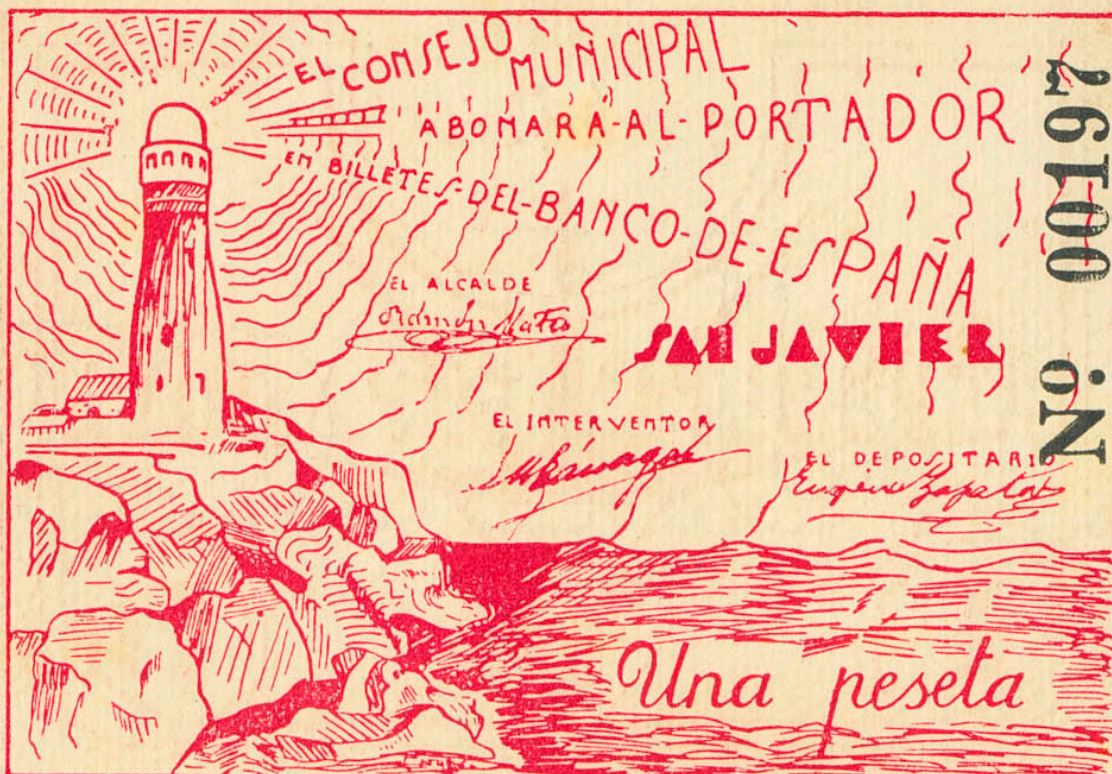 EL CONSEJO MUNICIPAL
ABONARA-AL-PORTADOR
EN BILLETES-DEL-BANCO-DE-ESPAÑA
EL ALCALDE
Ramón Mateo
SAN JAVIER
EL INTERVENTOR
EL DEPOSITARIO
Eugenio Zapata
Una peseta
Nº 00197